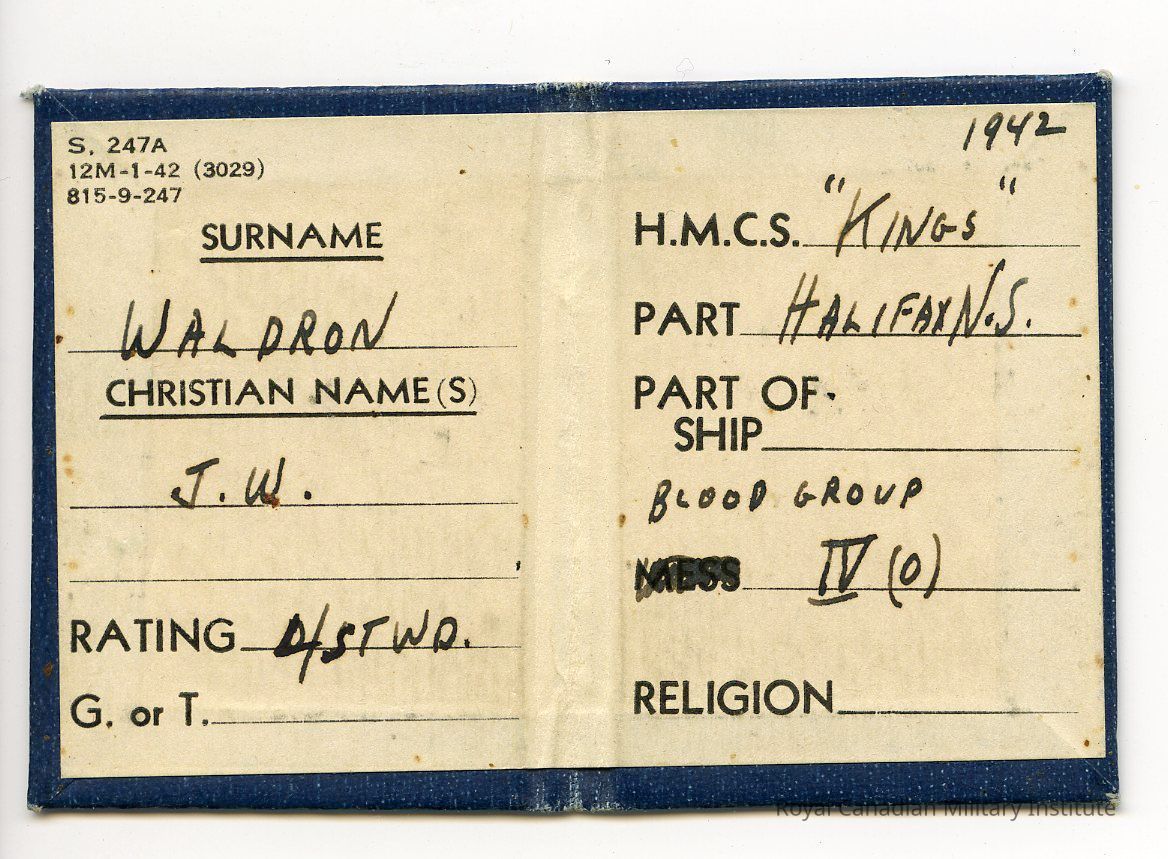 S. 247A
12M-1-42 (3029)
815-9-247
SURNAME
WALDRON
CHRISTIAN NAME(S)
J. W.
RATING D/STWD.
G. or T.
1942
H.M.C.S. "KINGS"
PART HALIFAX N.S.
PART OF
SHIP
BLOOD GROUP
MESS IV (O)
RELIGION
Royal Canadian Military Institute